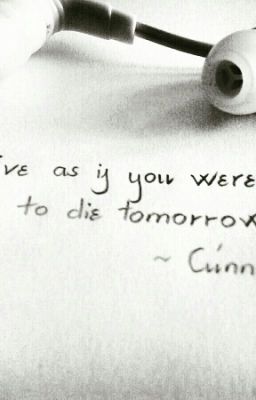 ive as if you were
to die tomorrow
~ Cunn